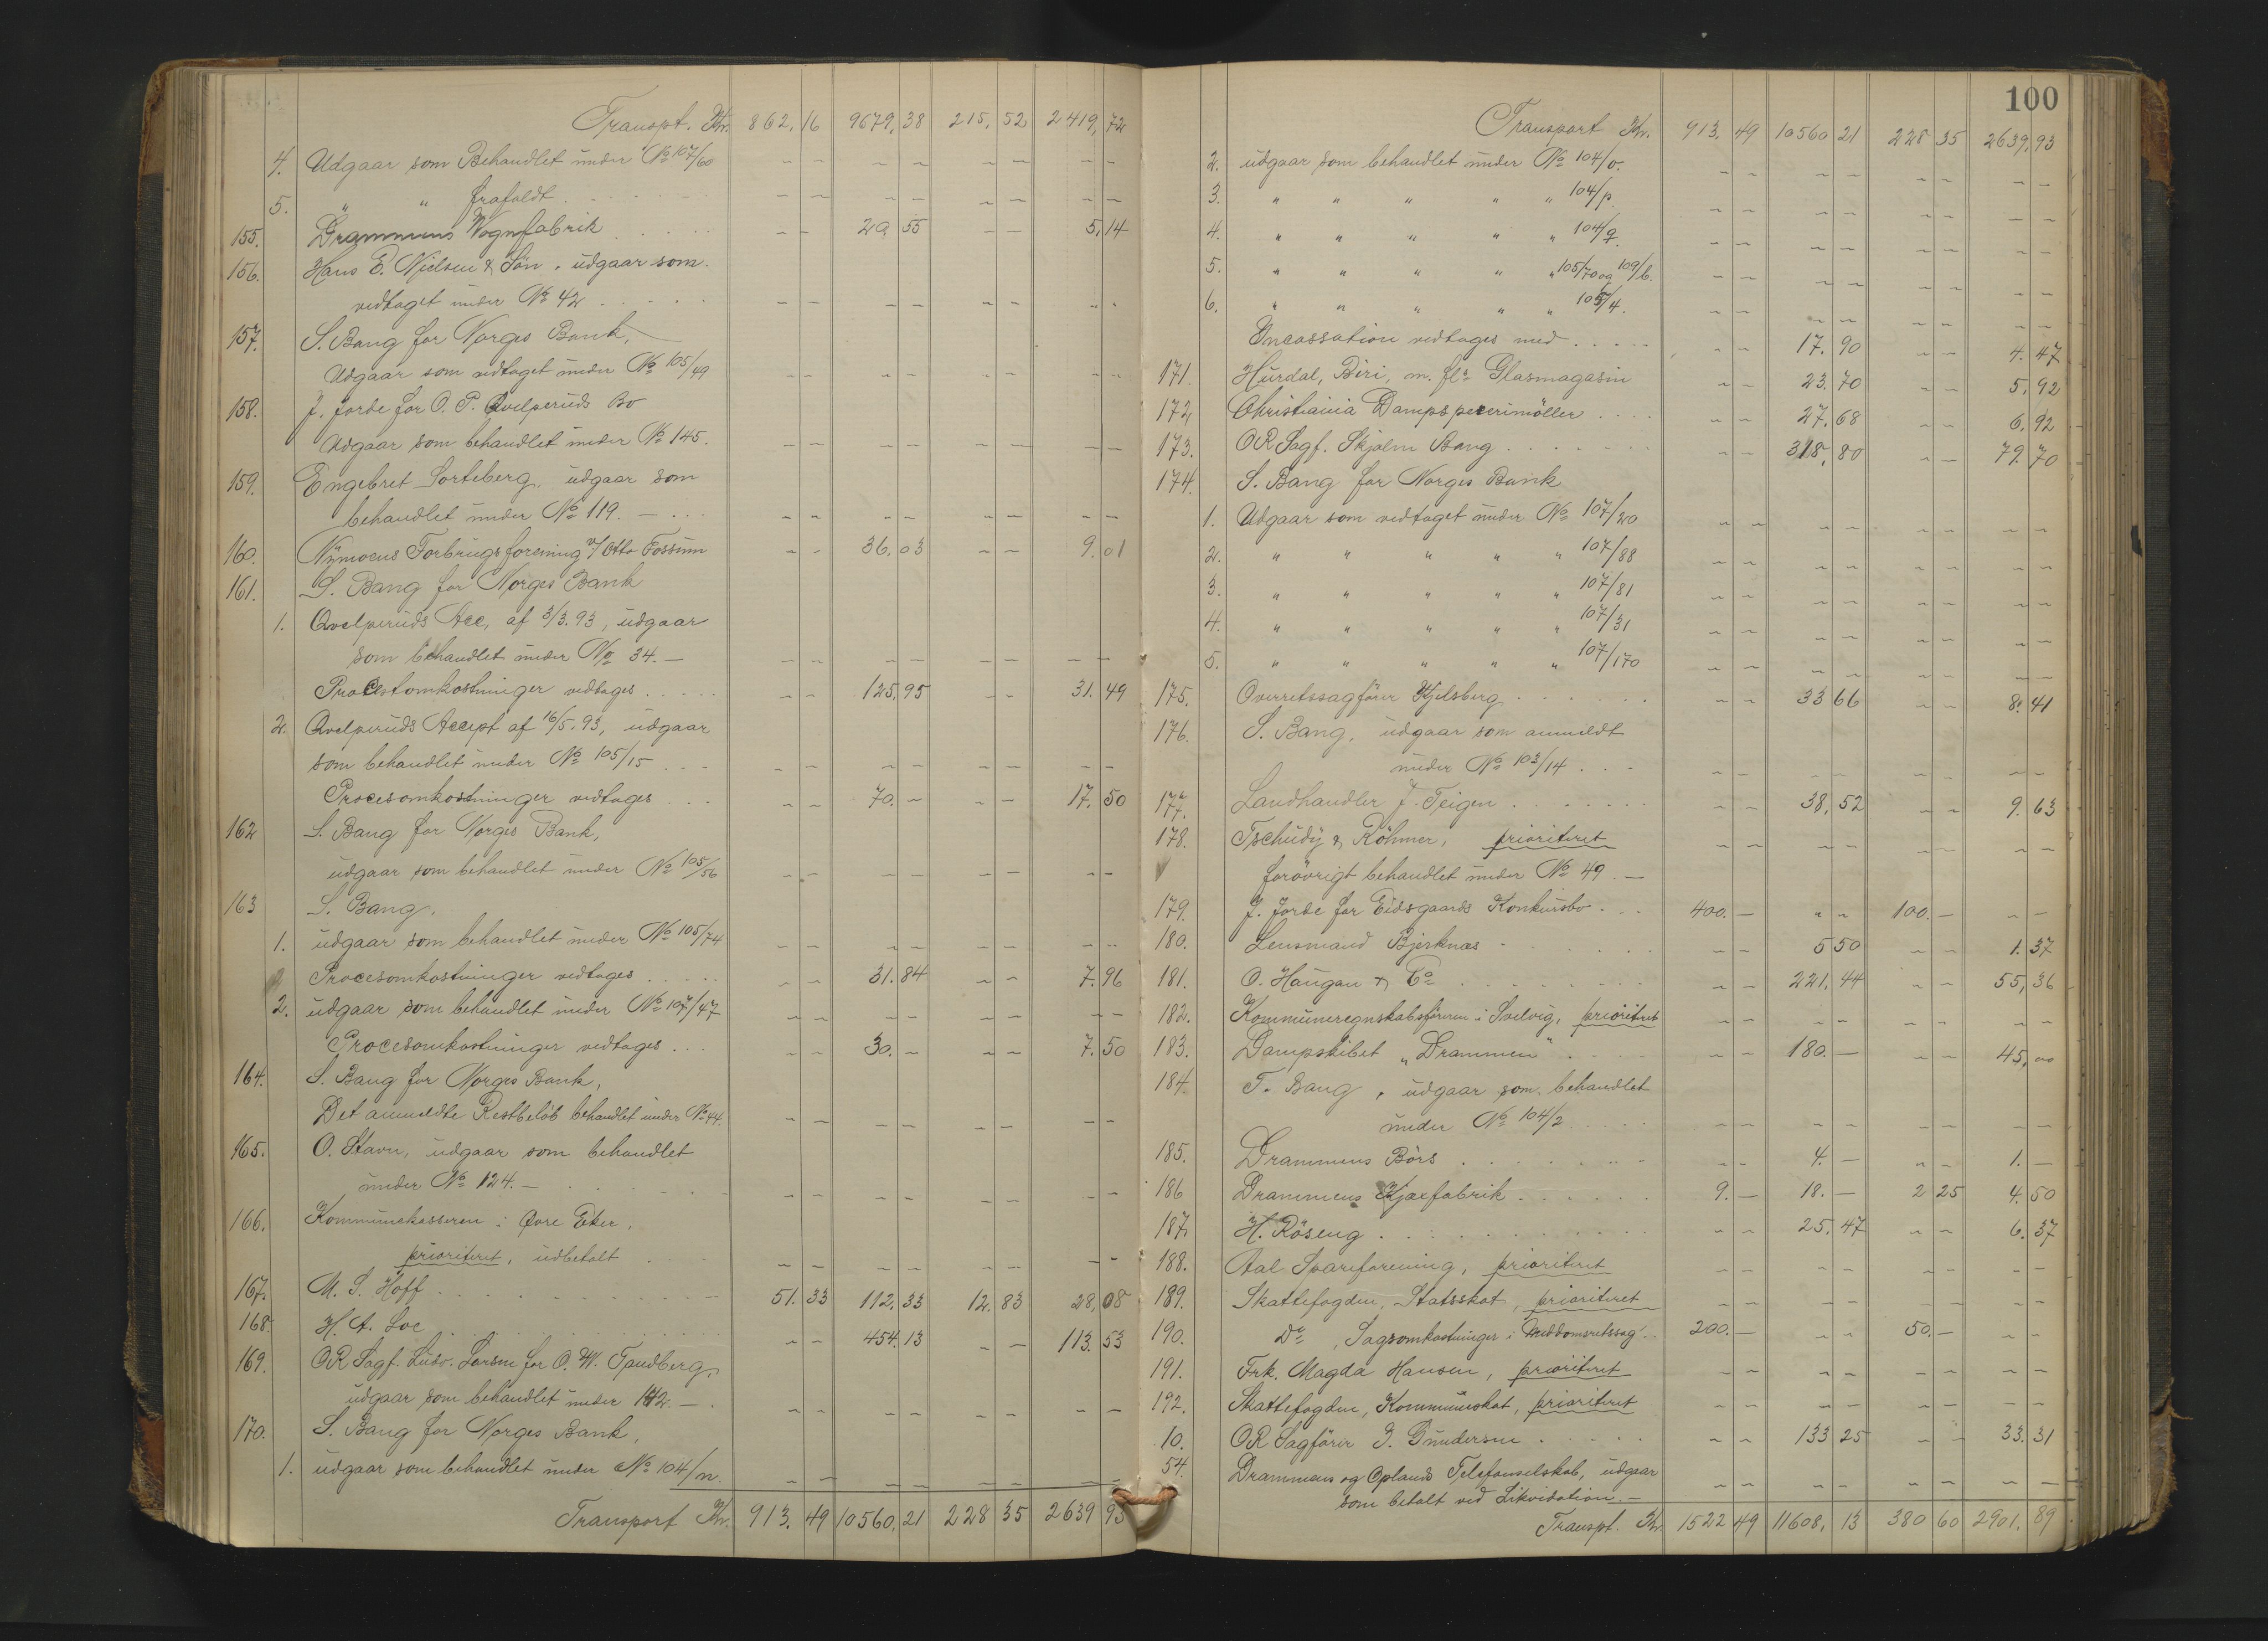 Transpt. Kr. 862,16 9679,38 215,52 2419,72
4. Udgaar som Behandlet under No 107/60 – – – – – – – –
5. " " frafaldt . . . . . – – – – – – – –
155. Drammens Vognfabrik . . . . – – 20 55 – – 5,14
156. Hans E. Nielsen & Sön, udgaar som
vedtaget under No 42 . . . . . – – – – – – – –
157. S. Bang for Norges Bank,
Udgaar som vedtaget under No 105/49 – – – – – – – –
158. J. Jorde for O. P. Qvelperuds Bo
Udgaar som behandlet under No 145. – – – – – – – –
159. Engebret Sorteberg, udgaar som
behandlet under No 119. – . . . – – – – – – – –
160. Nymoens Forbrugsforening v/ Otto Fossum – – 36.03 – – 9.01
161. S. Bang for Norges Bank
1. Qvelperuds Acc, af 3/3.93, udgaar
som behandlet under No 34. – – – – – – – – –
Procesomkostninger vedtages . . . . . – – 125,95 – – 31.49
2. Qvelperuds Accept af 16/5.93, udgaar
som behandlet under No 105/15 . . . – – – – – – – –
Procesomkostninger vedtages . . . – – 70. – – – 17.50
162 S. Bang for Norges Bank,
udgaar som behandlet under No 105/56 – – – – – – – –
163 S. Bang.
1. udgaar som behandlet under No 105/74 – – – – – – – –
Procesomkostninger vedtages . . . . . – – 31.84 – – 7.96
2. udgaar som behandlet under No 107/47 – – – – – – – –
Procesomkostninger vedtages . . . – – 30. – – – 7.50
164. S. Bang for Norges Bank,
Det anmeldte Restbelöb behandlet under No 44. – – – – – – – –
165. O. Stavn, udgaar som behandlet
under No 124. – . . . . – – – – – – – –
166. Kommunekasseren i Övre Eker,
prioriteret, udbetalt . . . – – – – – – – –
167. M. S. Hoff . . . . . . . . . 51.33 112,33 12.83 28,08
168. H. A. Loe . . . . . . . . . – – 454.13 – – 113.53
169. OR Sagf. Ludv. Larsen for O. W. Tandberg,
udgaar som behandlet under 142. – . – – – – – – – –
170. S. Bang for Norges Bank,
1. udgaar som behandlet under No 104/n. – – – – – – – –
Transport Kr. 913.49 10560,21 228 35 2639 93
100
Transport Kr. 913.49 10560 21 228 35 2639,93
2. udgaar som behandlet under No 104/o. – – – – – – – –
3. " " " " " 104/p. – – – – – – – –
4. " " " " " 104/q. – – – – – – – –
5. " " " " " 105/70 og 109/b. – – – – – – – –
6. " " " " " 105/4. – – – – – – – –
Incassation vedtages med . . . . . – – 17.90 – – 4.47
171. Hurdal, Biri, m. fls Glasmagasin – – 23.70 – – 5,92
172, Christiania Dampspecerimöller . . . . – – 27.68 – – 6.92
173. OR Sagf. Skjalm Bang . . . . . . . – – 318,80 – – 79.70
174. S. Bang for Norges Bank
1. Udgaar som vedtaget under No 107/20 – – – – – – – –
2. " " " " " 107/88 – – – – – – – –
3. " " " " " 107/81 – – – – – – – –
4. " " " " " 107/31 – – – – – – – –
5. " " " " " 107/170 – – – – – – – –
175. Overretssagförer Hjelsberg . . . . . – – 33 66 – – 8.41
176. S. Bang, udgaar som anmeldt
under No 103/14 . . . – – – – – – – –
177. Landhandler J. Teigen . . . . . . . – – 38,52 – – 9.63
178. Tschudy & Röhmer, prioriteret – – – – – – – –
forövrigt behandlet under No 49. –
179. J. Jorde for Eidsgaards Konkursbo . . . 400. – " " 100. – – –
180. Lensmand Bjerknæs . . . . . . – – 5 50 – – 1.37
181. O. Haugan & Co . . . . . . . . . – – 221,44 – – 55,36
182. Kommuneregnskabsföreren i Svelvig, prioriteret – – – – – – – –
183. Dampskibet „Drammen" . . . . – – 180. – – – 45,00
184. T. Bang, udgaar som behandlet
under No 104/2 . . . . . – – – – – – – –
185. Drammens Börs . . . . . . . . – – 4. – – – 1. –
186 Drammens Kjæxfabrik . . . . . . 9. – 18. – 2 25 4.50
187. H. Röseng . . . . . . . . . . – – 25,47 – – 6.37
188. Aal Spareforening, prioriteret – – – – – – – –
189. Skattefogden, Statsskat, prioriteret – – – – – – – –
190. Do, Sagsomkostninger i Meddomsretssag . . 200. – – – 50. – – –
191. Frk. Magda Hansen, prioriteret – – – – – – – –
192. Skattefogden, Kommuneskat, prioriteret – – – – – – – –
10. OR Sagförer G. Gundersen . . . . . – – 133 25 – – 33.31
54. Drammens og Oplands Telefonselskab, udgaar
som betalt ved Likvidation. – – – – – – – – –
Transpt. Kr. 1522 49 11608, 13 380 60 2901.89